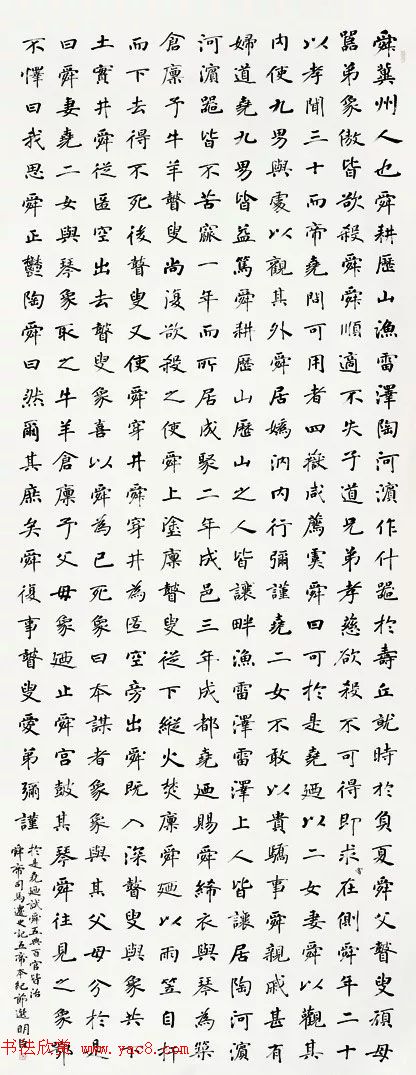 舜冀州人也舜耕歷山漁雷澤陶河濱作什器於壽丘就時於負夏舜父瞽叟頑母
嚚弟象傲皆欲殺舜舜順適不失子道兄弟孝慈欲殺不可得即求嘗在側舜年二十
以孝聞三十而帝堯問可用者四嶽咸薦虞舜曰可於是堯廼以二女妻舜以觀其
內使九男與處以觀其外舜居媯汭內行彌謹堯二女不敢以貴驕事舜親戚甚有
婦道堯九男皆益篤舜耕歷山歷山之人皆讓畔漁雷澤雷澤上人皆讓居陶河濱
河濱器皆不苦窳一年而所居成聚二年成邑三年成都堯廼賜舜絺衣與琴為築
倉廩予牛羊瞽叟尚復欲殺之使舜上塗廩瞽叟從下縱火焚廩舜廼以兩笠自扞
而下去得不死後瞽叟又使舜穿井舜穿井為匿空旁出舜既入深瞽叟與象共下
土實井舜從匿空出去瞽叟象喜以舜為已死象曰本謀者象象與其父母分於是
曰舜妻堯二女與琴象取之牛羊倉廩予父母象廼止舜宮鼓其琴舜往見之象鄂
不懌曰我思舜正鬱陶舜曰然爾其庶矣舜復事瞽叟愛弟彌謹
於是堯廼試舜五典百官皆治
舜帝司馬遷史記五帝本紀節選明
书法欣赏 www.yac8.com